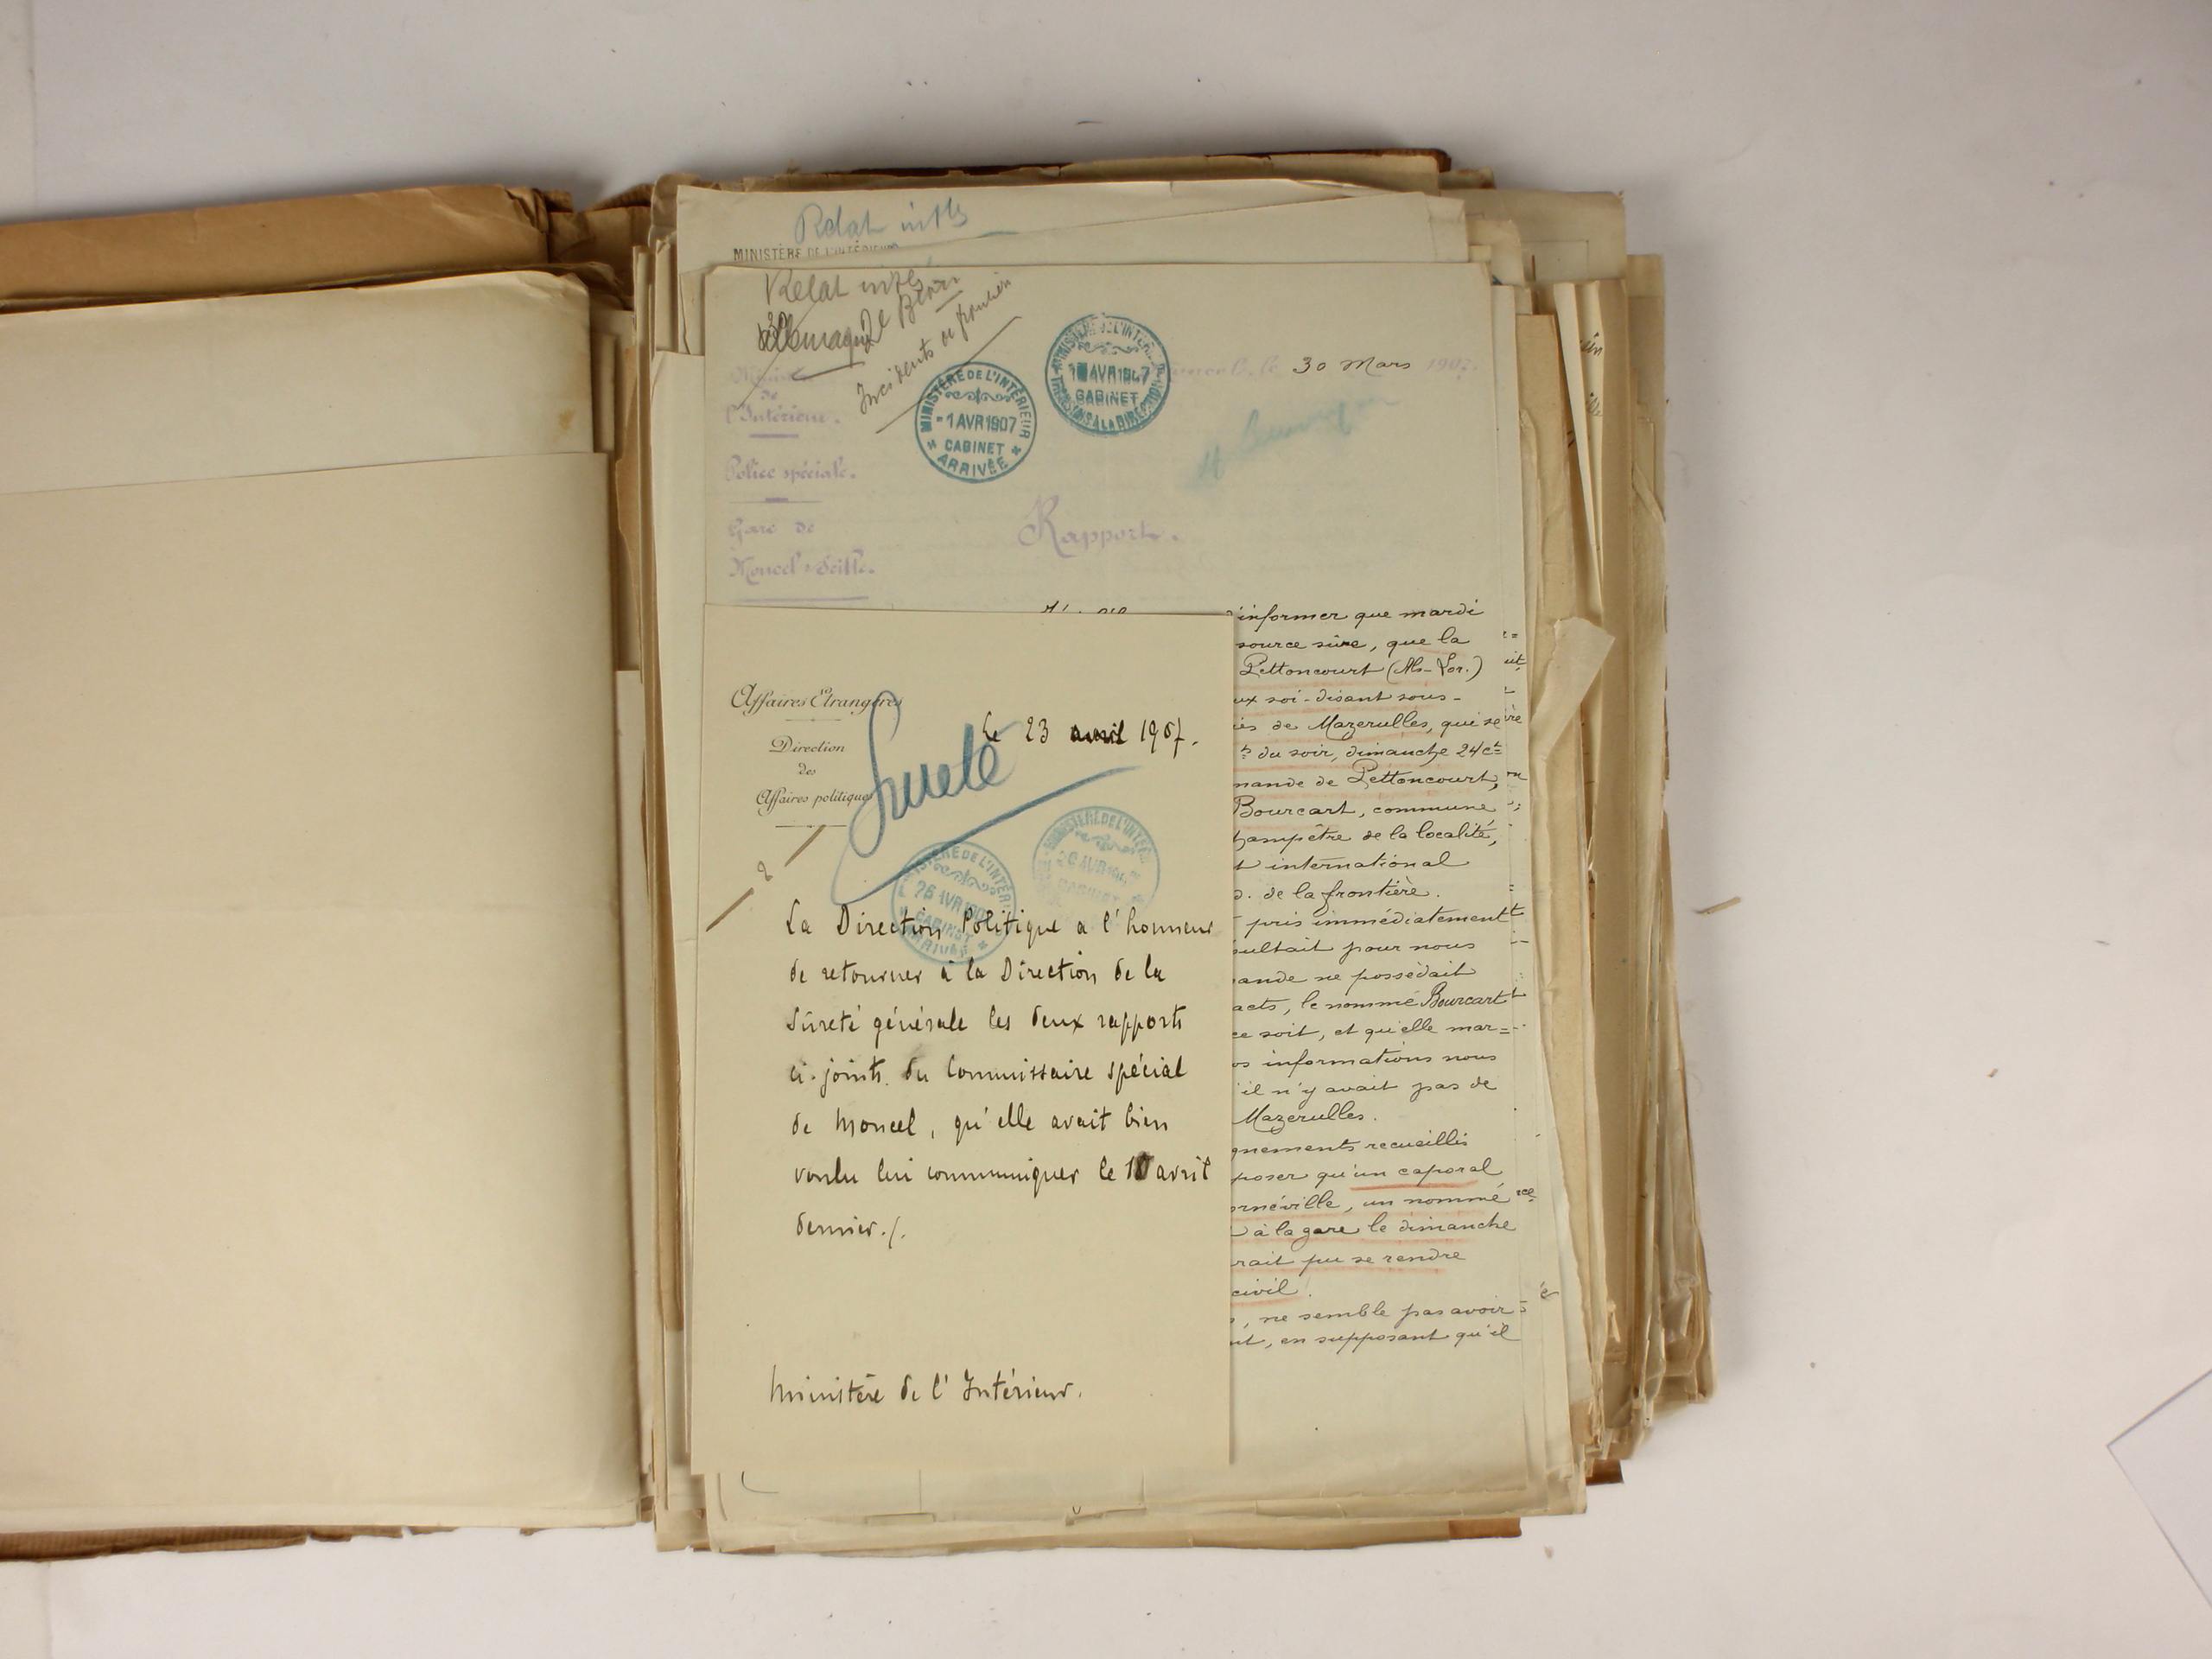 Relat intles
MINISTÈRE DE L'INTÉRIEUR
Relat intles
Allemagne
Incidents de frontière
MINISTÈRE DE L'INTÉRIEUR
- 1 AVR 1907
CABINET
ARRIVÉE
MINISTÈRE DE L'INTÉRIEUR
AVR 1907
CABINET
TRANSMIS A LA DIRECTION
Moncel, le 30 Mars 1907.
Ministère
de
l'Intérieur.
Police spéciale.
Gare de
Moncel s/Seille.
Rapport.
d'informer que mardi
source sûre, que la
Pettoncourt (Als-Lor.)
ux soi-disant sous-
iés de Mazerulles, qui se
du soir, dimanche 24 ct
mande de Pettoncourt,
Bourcart, commune,
hampêtre de la localité,
t international
d. de la frontière.
pris immédiatement
sultait pour nous
ande ne possédait
acts, le nommé Bourcart
ce soit, et qu'elle mar=
os informations nous
'il n'y avait pas de
Mazerulles.
gnements recueillis
poser qu'un caporal
ornéville, un nommé
à la gare le dimanche
rait pu se rendre
civil.
, ne semble pas avoir
nt, en supposant qu'il
Affaires Etrangères
Direction
des
Affaires politiques
Sureté
Le 23 avril 1907.
MINISTÈRE DE L'INTÉRIEUR
26 AVR 1907
CABINET
ARRIVÉE
MINISTÈRE DE L'INTÉRIEUR
26 AVR
CABINET
La Direction Politique a l'honneur
de retourner à la Direction de la
Sûreté générale les deux rapports
ci-joints du Commissaire spécial
de Moncel, qu'elle avait bien
voulu lui communiquer le 10 avril
dernier./.
Ministère de l'Intérieur.